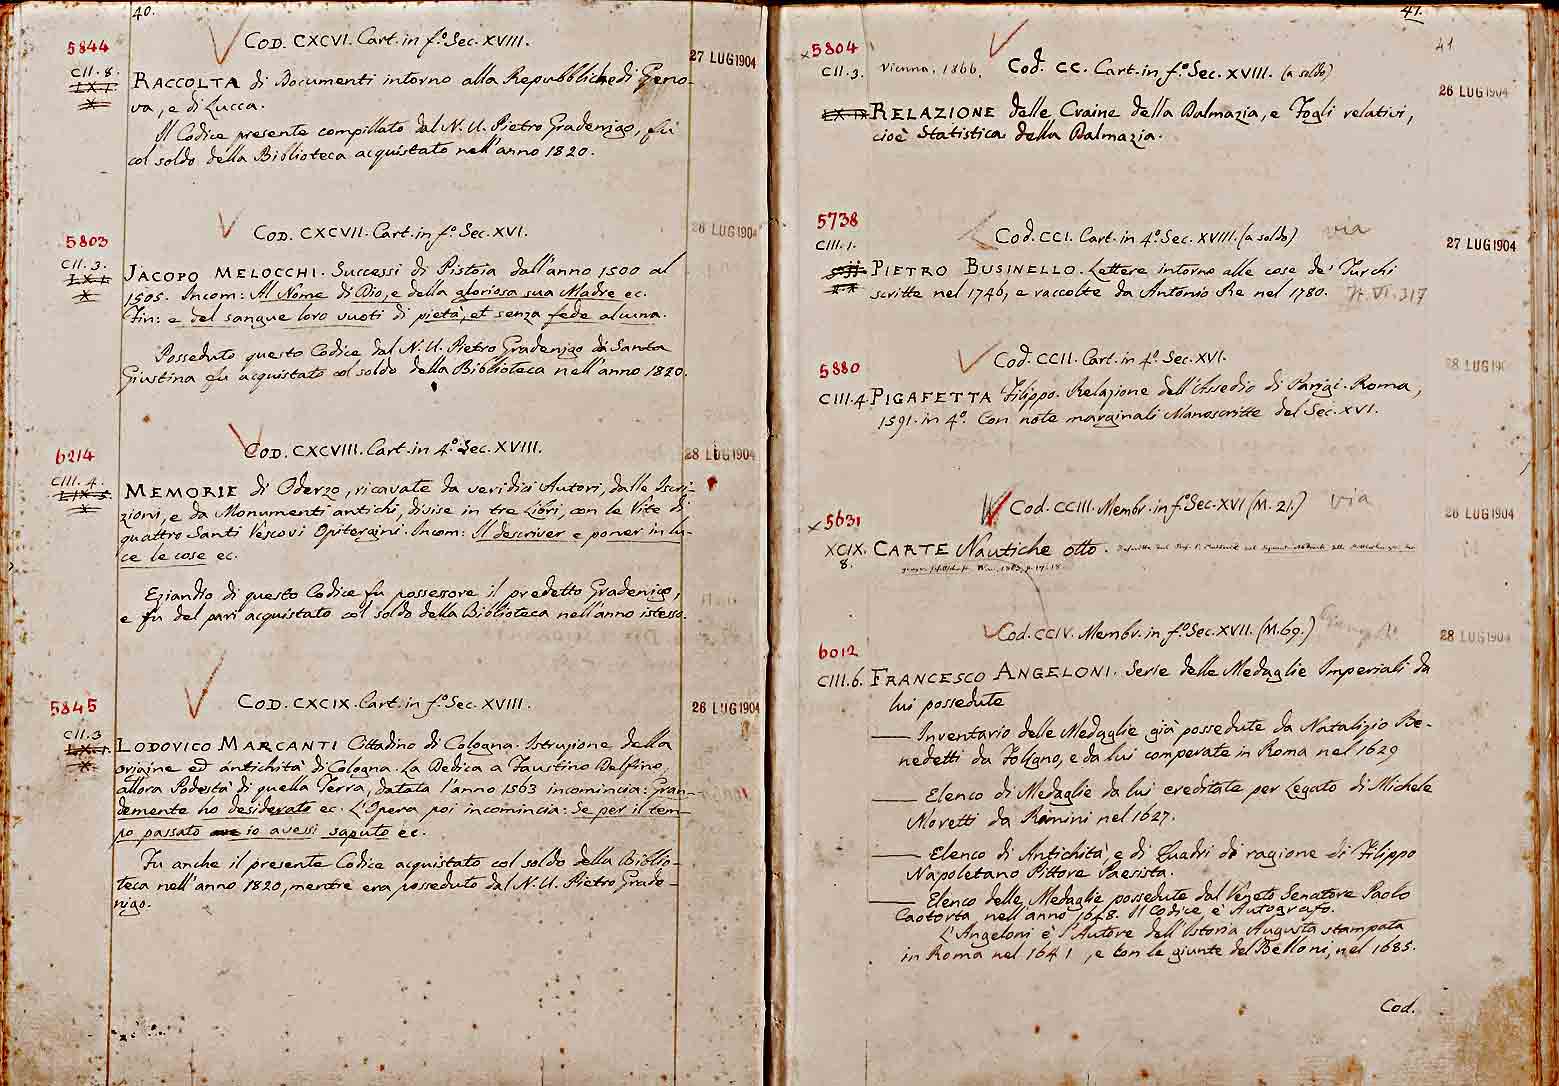 40.
5844
COD. CXCVI. Cart. in f.º Sec. XVIII.
27 LUG 1904
CII. 8.
RACCOLTA di Documenti intorno alla Repubbliche di Geno-
va, e di Lucca.
Il Codice presente compillato dal N. U. Pietro Gradenigo, fu
col soldo della Biblioteca acquistato nell'anno 1820.
5803
COD. CXCVII. Cart. in f.º Sec. XVI.
26 LUG 1904
CII. 3.
JACOPO MELOCCHI. Successi di Pistoia dall'anno 1500 al
1505. Incom: Al Nome di Dio, e della gloriosa sua Madre ec.
Fin: e del sangue loro vuoti di pietà, et senza fede alcuna.
Posseduto questo Codice dal N. U. Pietro Gradenigo da Santa
Giustina fu acquistato col soldo della Biblioteca nell'anno 1820.
6214
COD. CXCVIII. Cart. in 4.º Sec. XVIII.
28 LUG 1904
CIII. 4.
LIX. 3.
MEMORIE di Oderzo, ricavate da veridici Autori, dalle Iscri-
zioni, e da Monumenti antichi, divise in tre Libri, con le Vite di
quattro Santi Vescovi Opitergini. Incom: Il descriver e poner in lu-
ce le cose ec.
Eziandio di questo Codice fu possessore il predetto Gradenigo,
e fu del pari acquistato col soldo della Biblioteca nell'anno istesso.
5845
COD. CXCIX. Cart. in f.º Sec. XVIII.
26 LUG 1904
CII. 3
LODOVICO MARCANTI Cittadino di Cologna. Istruzione della
origine ed antichità di Cologna. La Dedica a Faustino Delfino,
allora Podestà di quella Terra, datata l'anno 1563 incomincia: Gran-
demente ho desiderato ec. L'Opera poi incomincia: Se per il tem-
po passato io avessi saputo ec.
Fu anche il presente Codice acquistato col soldo della Biblio-
teca nell'anno 1820, mentre era posseduto dal N. U. Pietro Grade-
nigo.
41.
41
x 5804
CII. 3.
Vienna. 1866.
Cod. CC. Cart. in f.º Sec. XVIII. (a soldo)
26 LUG 1904
RELAZIONE delle Craine della Dalmazia, e Fogli relativi,
cioè Statistica della Dalmazia.
5738
CIII. 1.
Cod. CCI. Cart. in 4.º Sec. XVIII. (a soldo)
via
27 LUG 1904
PIETRO BUSINELLO. Lettere intorno alle cose de' Turchi
scritte nel 1746, e raccolte da Antonio Re nel 1780.
It. VI. 317
5880
Cod. CCII. Cart. in 4.º Sec. XVI.
28 LUG 190
CIII. 4.
PIGAFETTA Filippo. Relazione dell'Assedio di Parigi. Roma,
1591. in 4.º Con note marginali Manoscritte del Sec. XVI.
x 5631
Cod. CCIII. Membr. in f.º Sec. XVI (M. 21.)
via
26 LUG 1904
XCIX.
8.
CARTE Nautiche otto.
6012
Cod. CCIV. Membr. in f.º Sec. XVII. (M. 69.)
28 LUG 1904
CIII. 6.
FRANCESCO ANGELONI. Serie delle Medaglie Imperiali da
lui possedute
— Inventario delle Medaglie già possedute da Natalizio Be-
nedetti da Foligno, e da lui comperate in Roma nel 1629
— Elenco di Medaglie da lui ereditate per Legato di Michele
Moretti da Rimini nel 1627.
— Elenco di Antichità, e di Quadri di ragione di Filippo
Napoletano Pittore Paesista.
— Elenco delle Medaglie possedute dal Veneto Senatore Paolo
Caotorta nell'anno 1648. Il Codice è Autografo.
L'Angeloni è l'Autore dell'Istoria Augusta stampata
in Roma nel 1641, e con le giunte del Bellori, nel 1685.
Cod.